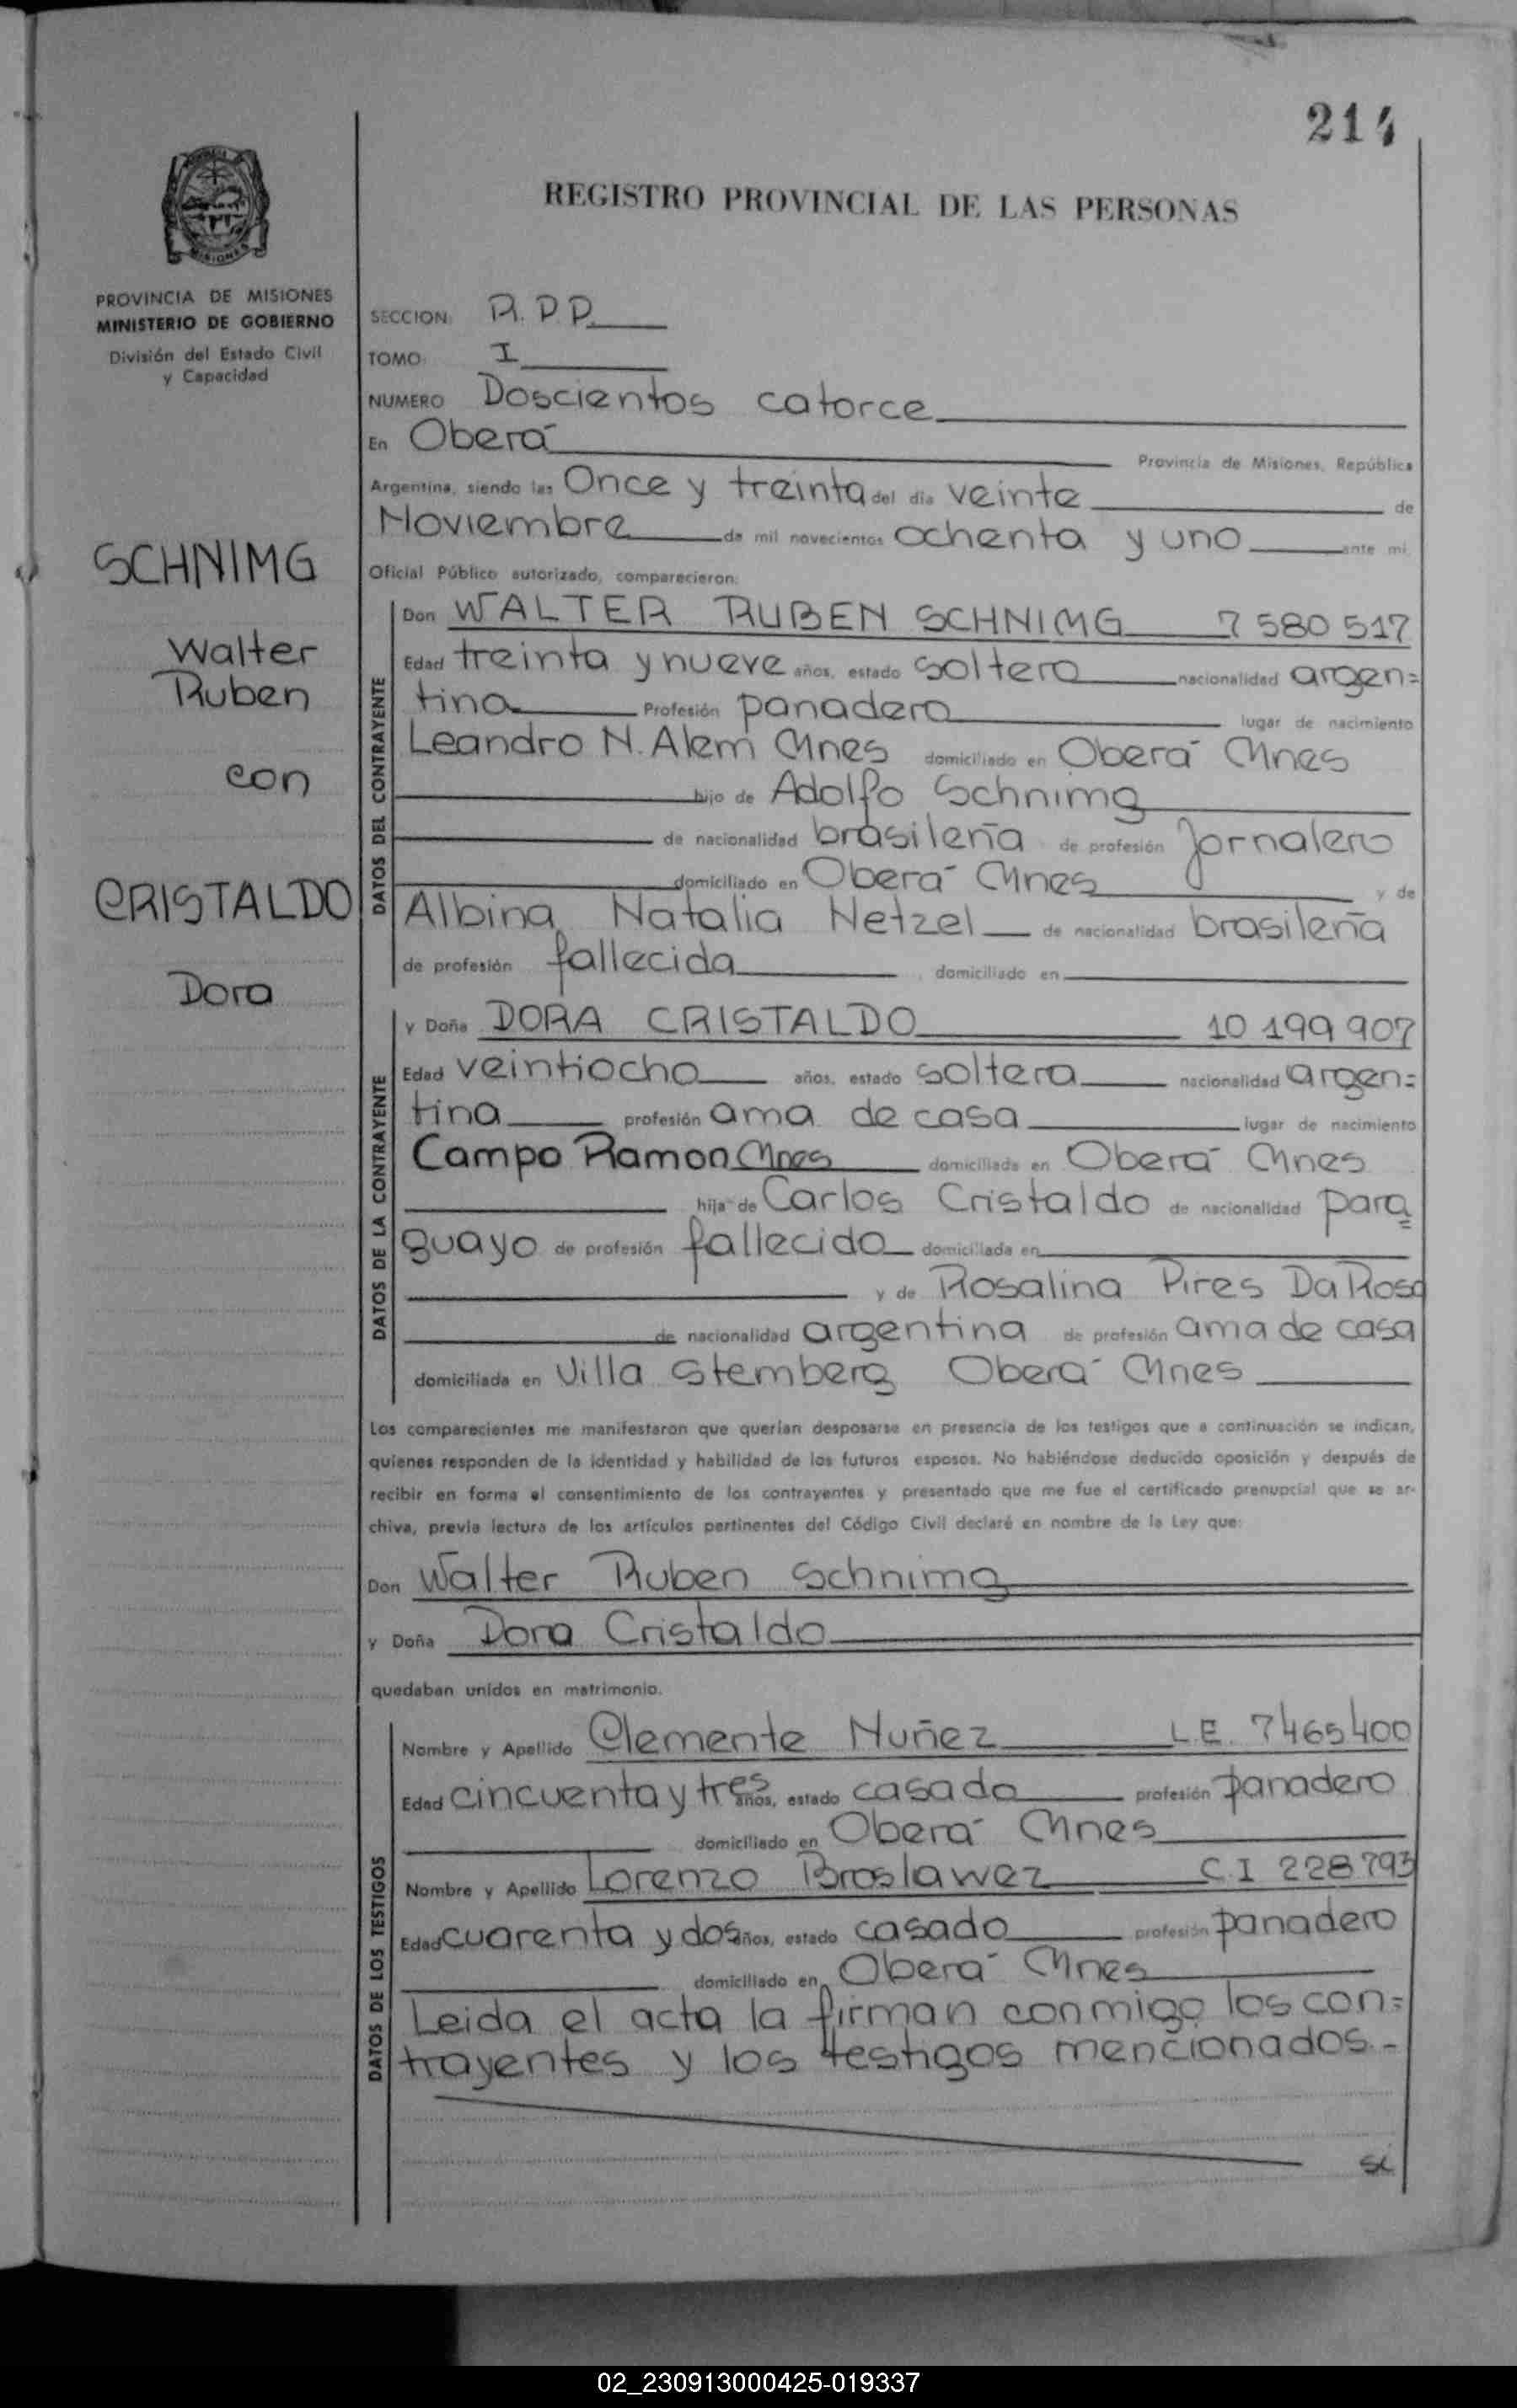 214
REGISTRO PROVINCIAL DE LAS PERSONAS
MISIONES
PROVINCIA DE MISIONES
MINISTERIO DE GOBIERNO
División del Estado Civil
y Capacidad
SCHNIMG
Walter
Ruben
con
CRISTALDO
Dora
SECCION: R.P.P.
TOMO: I
NUMERO Doscientos catorce
En Oberá
Provincia de Misiones, República
Argentina, siendo las Once y treinta del día veinte de
Noviembre de mil novecientos ochenta y uno ante mi,
Oficial Público autorizado, comparecieron:
DATOS DEL CONTRAYENTE
Don WALTER RUBEN SCHNIMG 7 580 517
Edad treinta y nueve años, estado soltero nacionalidad argen=
tina Profesión panadero lugar de nacimiento
Leandro N. Alem Mnes domiciliado en Oberá Mnes
hijo de Adolfo Schnimg
de nacionalidad brasileña de profesión Jornalero
domiciliado en Oberá Mnes y de
Albina Natalia Netzel de nacionalidad brasileña
de profesión fallecida domiciliado en
DATOS DE LA CONTRAYENTE
y Doña DORA CRISTALDO 10 199 907
Edad veintiocho años, estado soltera nacionalidad argen=
tina profesión ama de casa lugar de nacimiento
Campo Ramon Mnes domiciliada en Oberá Mnes
hija de Carlos Cristaldo de nacionalidad para=
guayo de profesión fallecido domiciliada en
y de Rosalina Pires Da Rosa
de nacionalidad argentina de profesión ama de casa
domiciliada en Villa Stemberg Oberá Mnes
Los comparecientes me manifestaron que querían desposarse en presencia de los testigos que a continuación se indican,
quienes responden de la identidad y habilidad de los futuros esposos. No habiéndose deducido oposición y después de
recibir en forma el consentimiento de los contrayentes y presentado que me fue el certificado prenupcial que se ar-
chiva, previa lectura de los artículos pertinentes del Código Civil declaré en nombre de la Ley que:
Don Walter Ruben Schnimg
y Doña Dora Cristaldo
quedaban unidos en matrimonio.
DATOS DE LOS TESTIGOS
Nombre y Apellido Clemente Nuñez L.E. 7465400
Edad cincuenta y tres años, estado casado profesión panadero
domiciliado en Oberá Mnes
Nombre y Apellido Lorenzo Broslawez C.I 228793
Edad cuarenta y dos años, estado casado profesión panadero
domiciliado en Oberá Mnes
Leida el acta la firman conmigo los con=
trayentes y los testigos mencionados.-
02_230913000425-019337